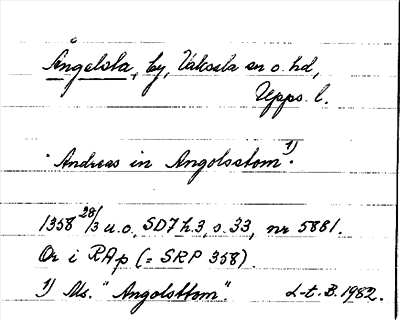 Ångelsta, by, Vaksala sn o. hd,
Upps. l.
Andreas in Angolsstom 1).
1358 28/3 u.o., SD7 h.3, s. 33, nr 5881.
Or i RAp (= SRP 358).
1) Ms. "Angolsttom".
L-t. B. 1982.